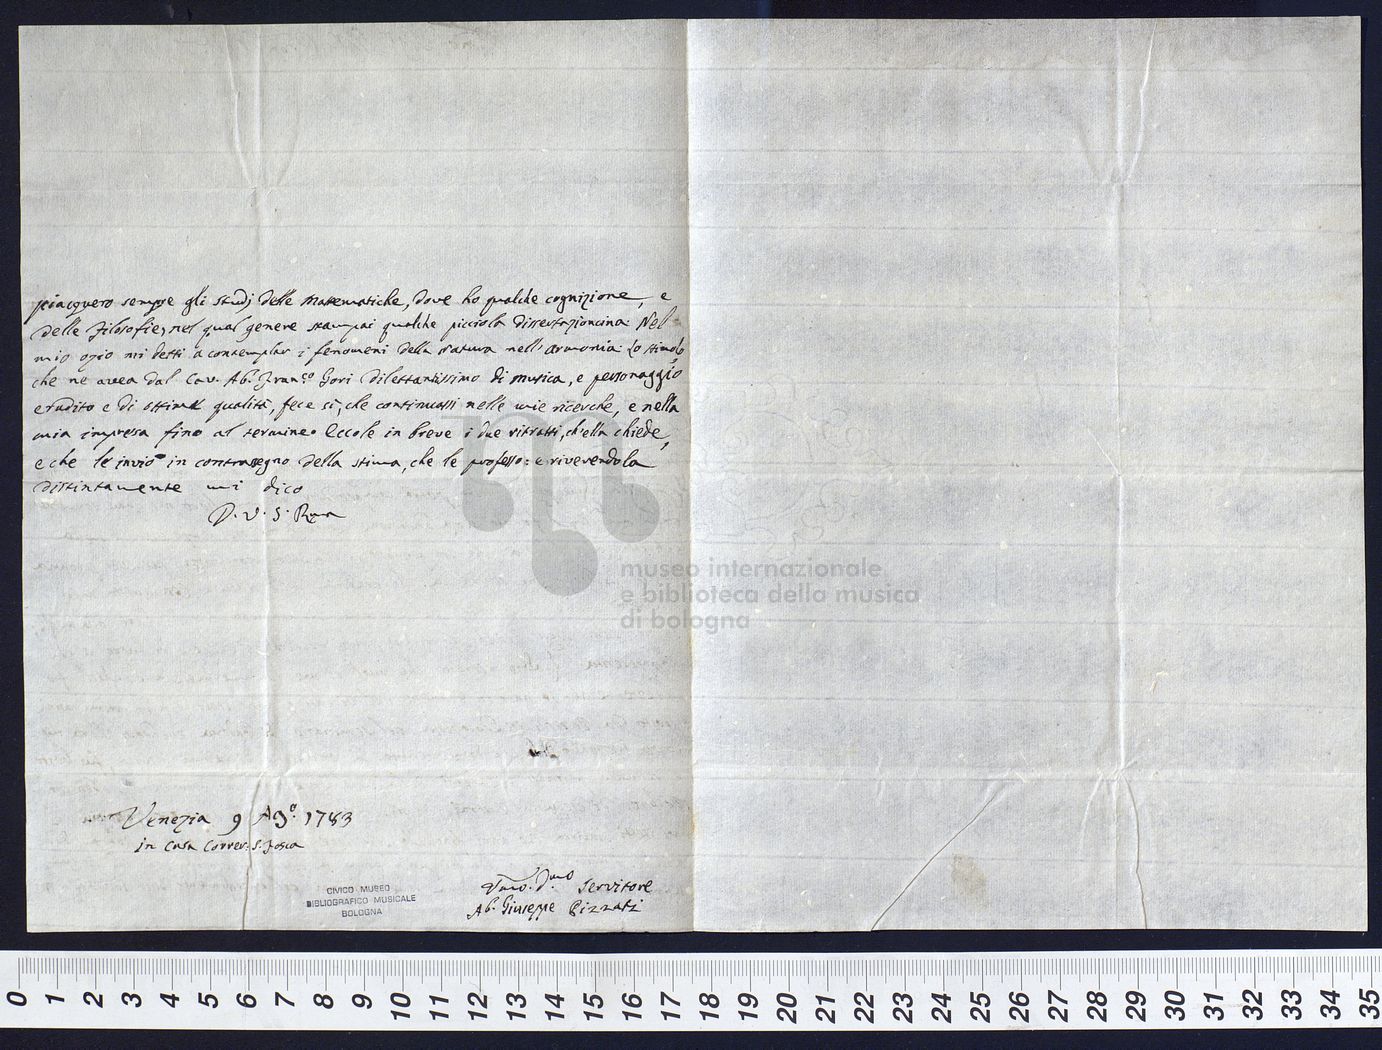 piacquero sempre gli studj delle Matematiche, dove ho qualche cognizione, e
delle Filosofie, nel qual genere stampai qualche picciola dissertazioncina. Nel
mio ozio mi detti a contemplar i fenomeni della Natura nell'armonia. Lo stimolo,
che ne avea dal Cav. Ab. Franc.o Gori dilettantissimo di musica, e personaggio
erudito e di ottime qualità, fece sì, che continuassi nelle mie ricerche, e nella
mia impresa fino al termine. Eccole in breve i due ritratti, ch'ella chiede,
e che le invio in contrassegno della stima, che le professo: e riverendola
distintamente mi dico
D. V. S. Rma
Venezia 9 Ag.o 1783
in Casa Correr. S. Fosca
Umo. D.mo Servitore
Ab. Giuseppe Pizzati
CIVICO MUSEO
BIBLIOGRAFICO MUSICALE
BOLOGNA
museo internazionale
e biblioteca della musica
di bologna
0 1 2 3 4 5 6 7 8 9 10 11 12 13 14 15 16 17 18 19 20 21 22 23 24 25 26 27 28 29 30 31 32 33 34 35